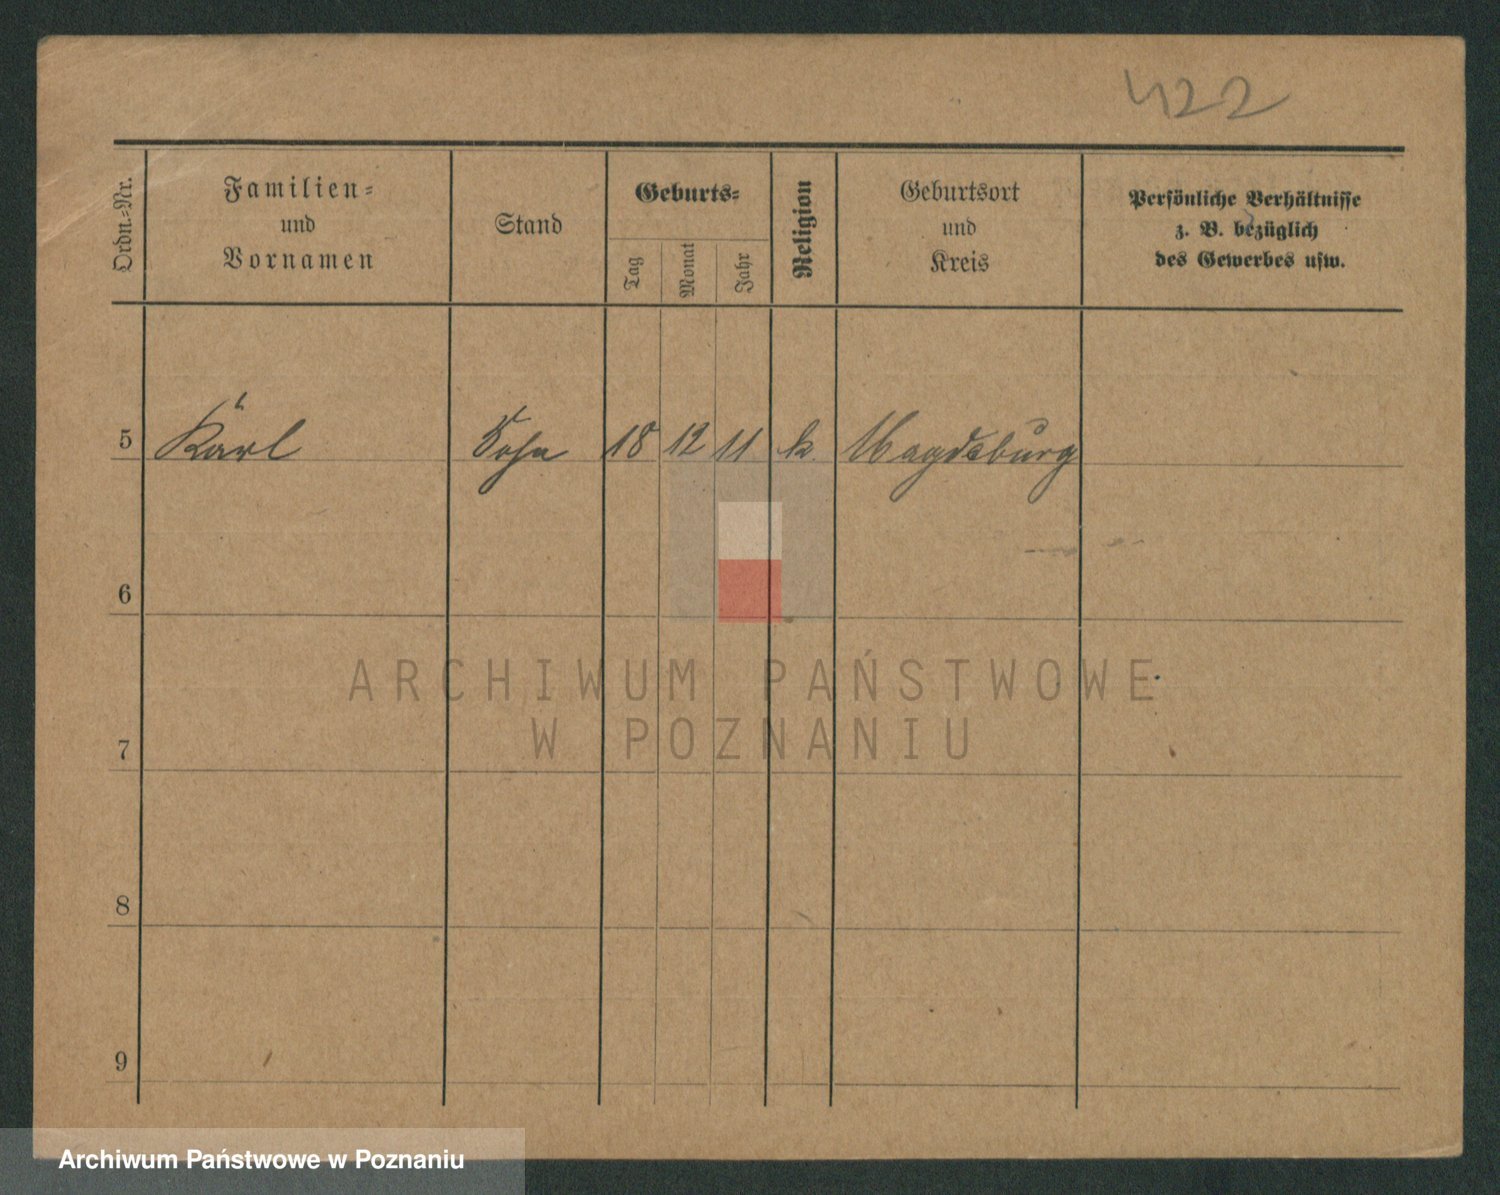 422
Ordn.-Nr.
Familien-
und
Vornamen
Stand
Geburts-
Tag
Monat
Jahr
Religion
Geburtsort
und
Kreis
Persönliche Verhältnisse
z. B. bezüglich
des Gewerbes usw.
5 Karl Sohn 18 12 11 k Magdeburg
6
7
8
9
ARCHIWUM PAŃSTWOWE
W POZNANIU
Archiwum Państwowe w Poznaniu